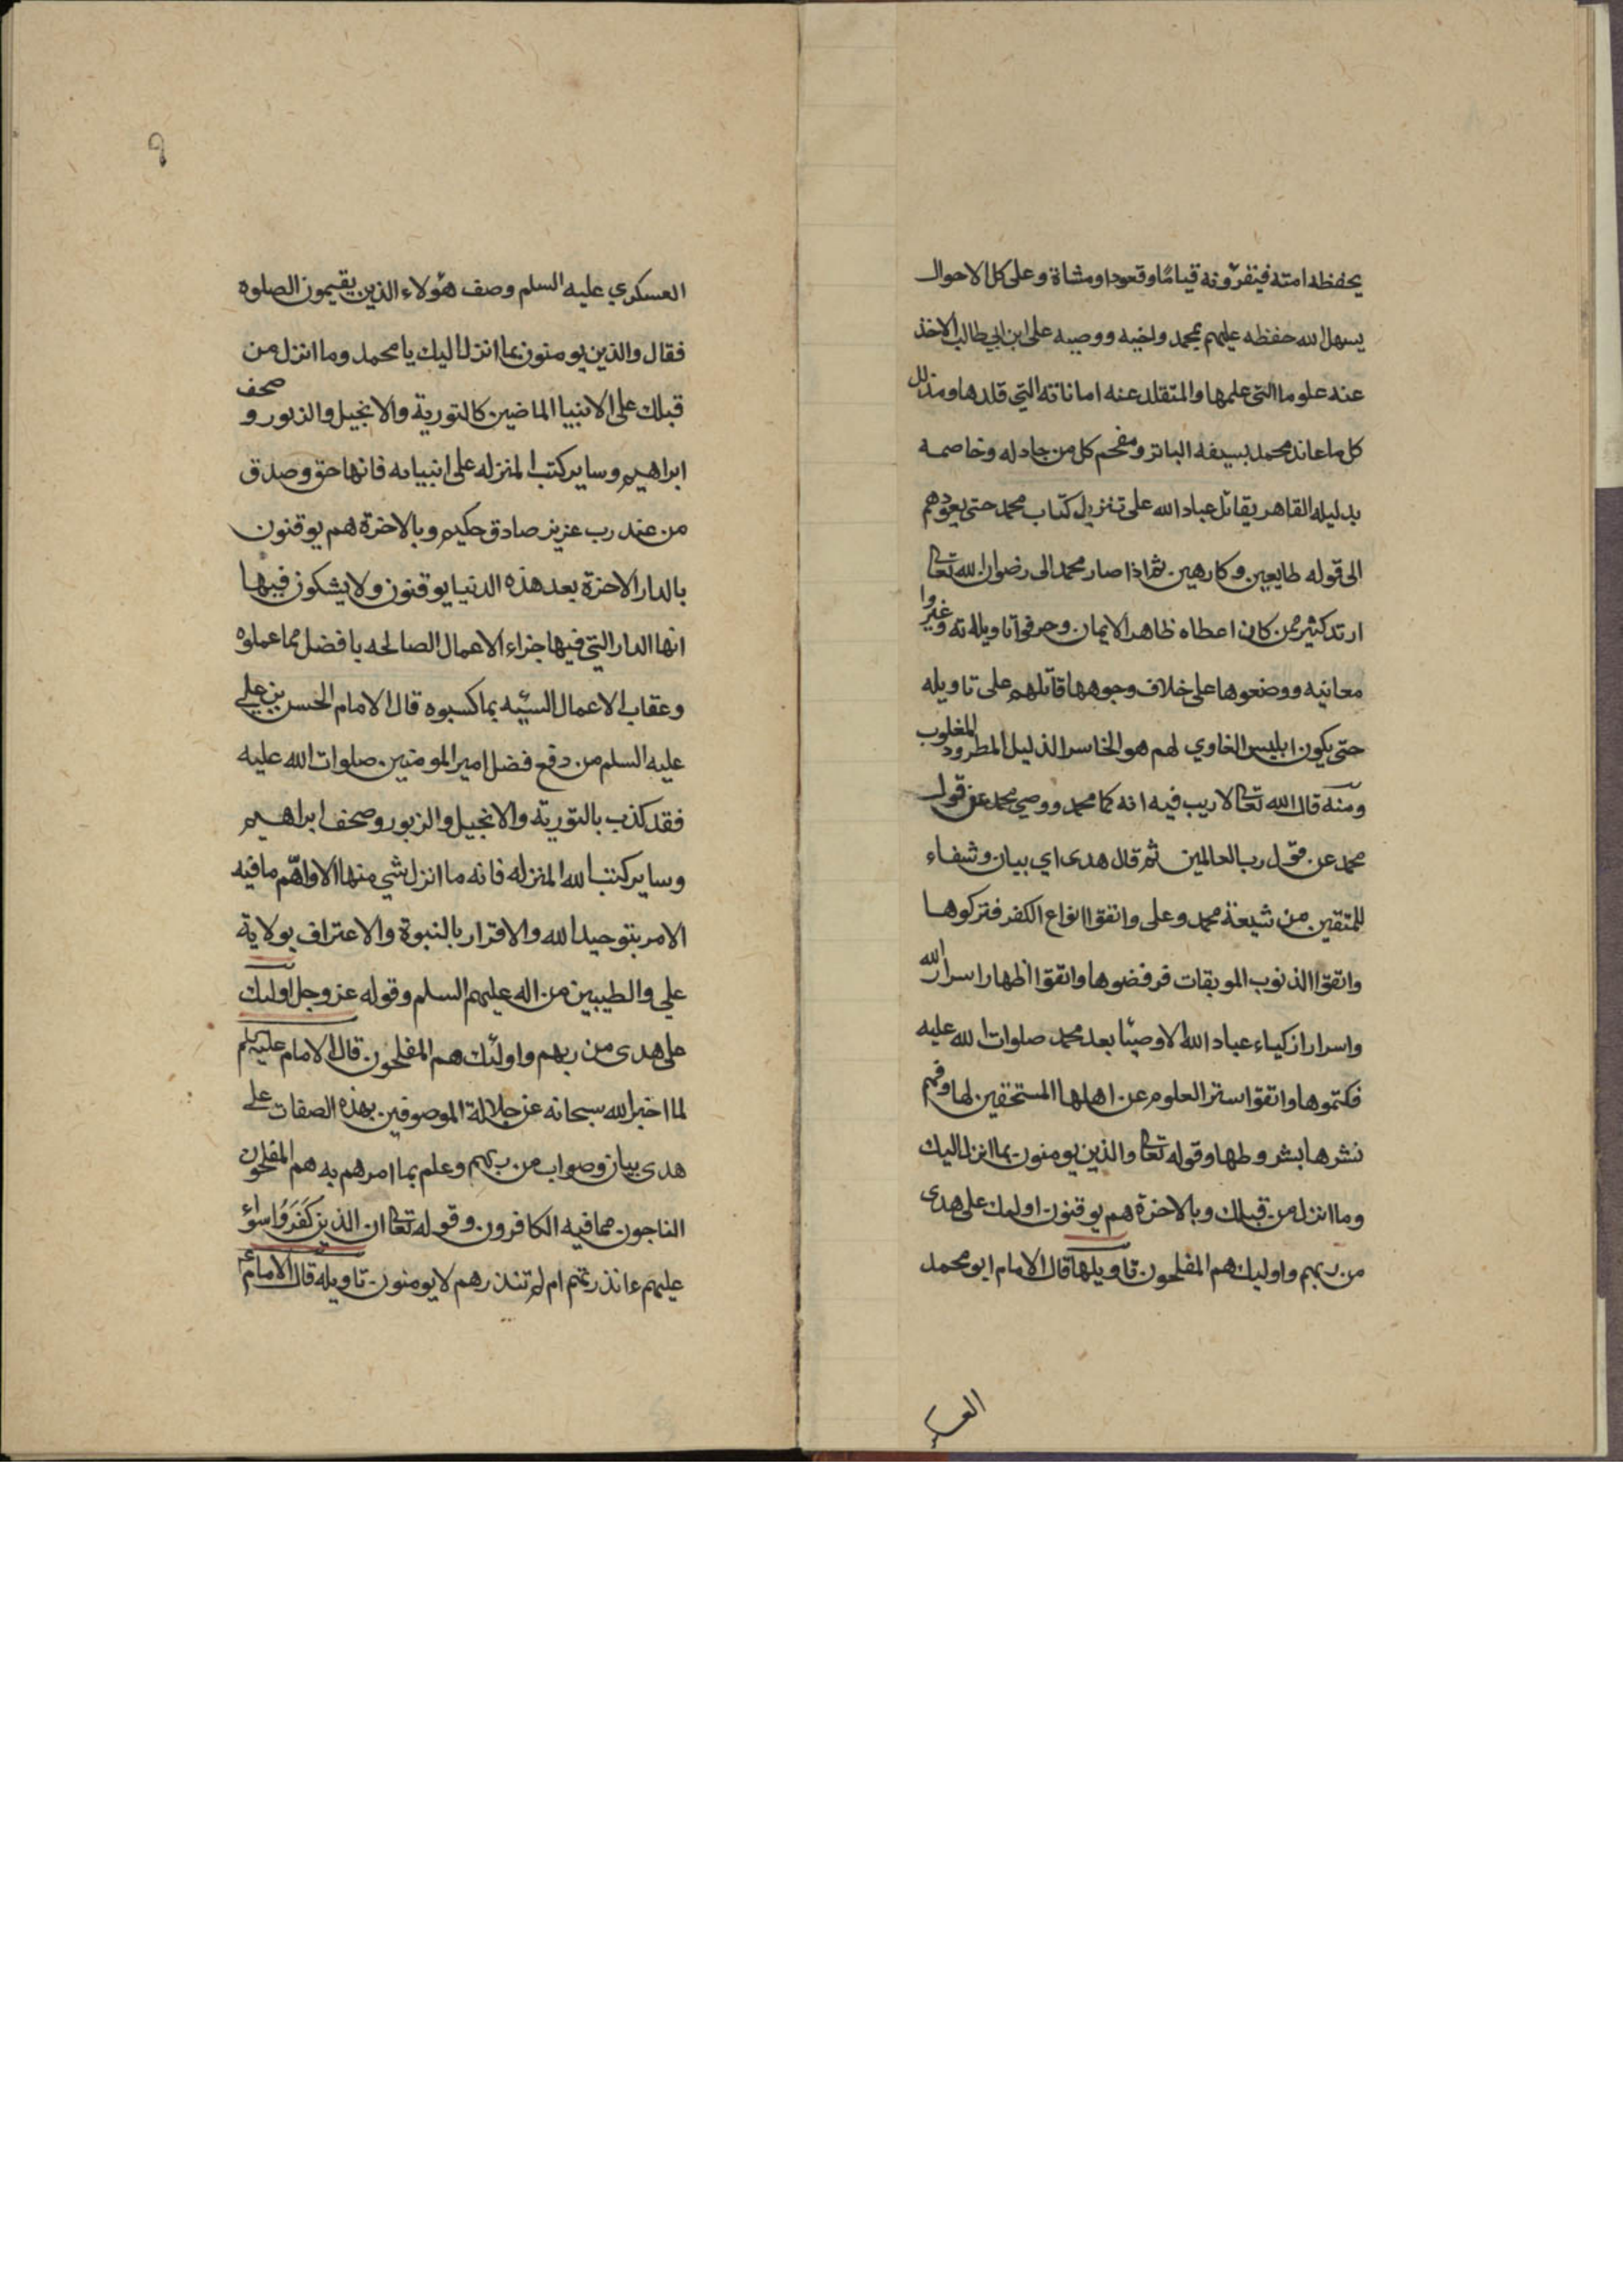 يحفظه امته فيقرؤنه قياما وقعودا ومشاة وعلى كل الاحوال
يسهل الله حفظه عليهم بمحمد واخيه ووصيه على ابن ابي طالب الاخذ
عنه علوما التي علمها والمتقلد عنه اماناته التي قلدها ومذلل
كل ما عاند محمد بسيفه الباتر ومفحم كل من جادله وخاصمه
بدليله القاهر يقاتل عباد الله على تنزيل كتاب محمد حتى يعودهم
الى قوله طايعين وكارهين ثم اذا صار محمد الى رضوان لله تعالى
ارتد كثير ممن كان اعطاه ظاهر الايمان وحرفوا تاويلاته وغيروا
معانيه ووضعوها على خلاف وجوهها قاتلهم على تاويله
حتى يكون ابليس الغاوي لهم هو الخاسر الذليل المطرود المغلوب
ومنه قال الله تعالى لا ريب فيه انه كما محمد ووصي محمد عن قول
محمد عن قول رب العالمين ثم قال هدى اي بيان وشفاء
للمتقين من شيعة محمد وعلى واتقوا انواع الكفر فتركوها
واتقوا الذنوب الموبقات فرفضوها واتقوا اظهار اسرار الله
واسرار ازكياء عباد الله الاوصيا بعد محمد صلوات لله عليه
فكتموها واتقوا ستر العلوم عن اهلها المستحقين لها وفهم
نشرها بشروطها وقوله تعالى والذين يومنون بما انزل اليك
وما انزل من قبلك وبالاخرة هم يوقنون اوليك على هدى
من ربهم واوليك هم المفلحون تاويلها قال الامام ابو محمد
العسكري
٩
العسكري عليه السلم وصف هؤلاء الذين يقيمون الصلوه
فقال والذين يومنون بما انزل اليك يا محمد وما انزل من
قبلك على الانبيا الماضين كالتورية والانجيل والزبور و صحف
ابراهيم وساير كتب المنزله على انبيايه فانها حق وصدق
من عند رب عزيز صادق حكيم وبالاخرة هم يوقنون
بالدار الاخرة بعد هذه الدنيا يوقنون ولا يشكون فيها
انها الدار التي فيها جزاء الاعمال الصالحه بافضل مما عملوه
وعقاب الاعمال السيئه بما كسبوه قال الامام الحسن بن علي
عليه السلم من دفع فضل امير المومنين صلوات الله عليه
فقد كذب بالتورية والانجيل والزبور وصحف ابراهيم
وساير كتب الله المنزله فانه ما انزل شي منها الا واهم ما فيه
الامر بتوحيد الله والاقرار بالنبوة والاعتراف بولاية
علي والطيبين من اله عليهم السلم وقوله عز وجل اوليك
على هدى من ربهم واولئك هم المفلحون قال الامام عليه السلم
لما اخبر الله سبحانه عن جلالة الموصوفين بهذه الصفات على
هدى بيان وصواب من ربهم وعلم بما امرهم به هم المفلحون
الناجون مما فيه الكافرون وقوله تعالى ان الذين كَفَرُوا سواء
عليهم ءانذرتهم ام لم تنذرهم لا يومنون تاويله قال الامام